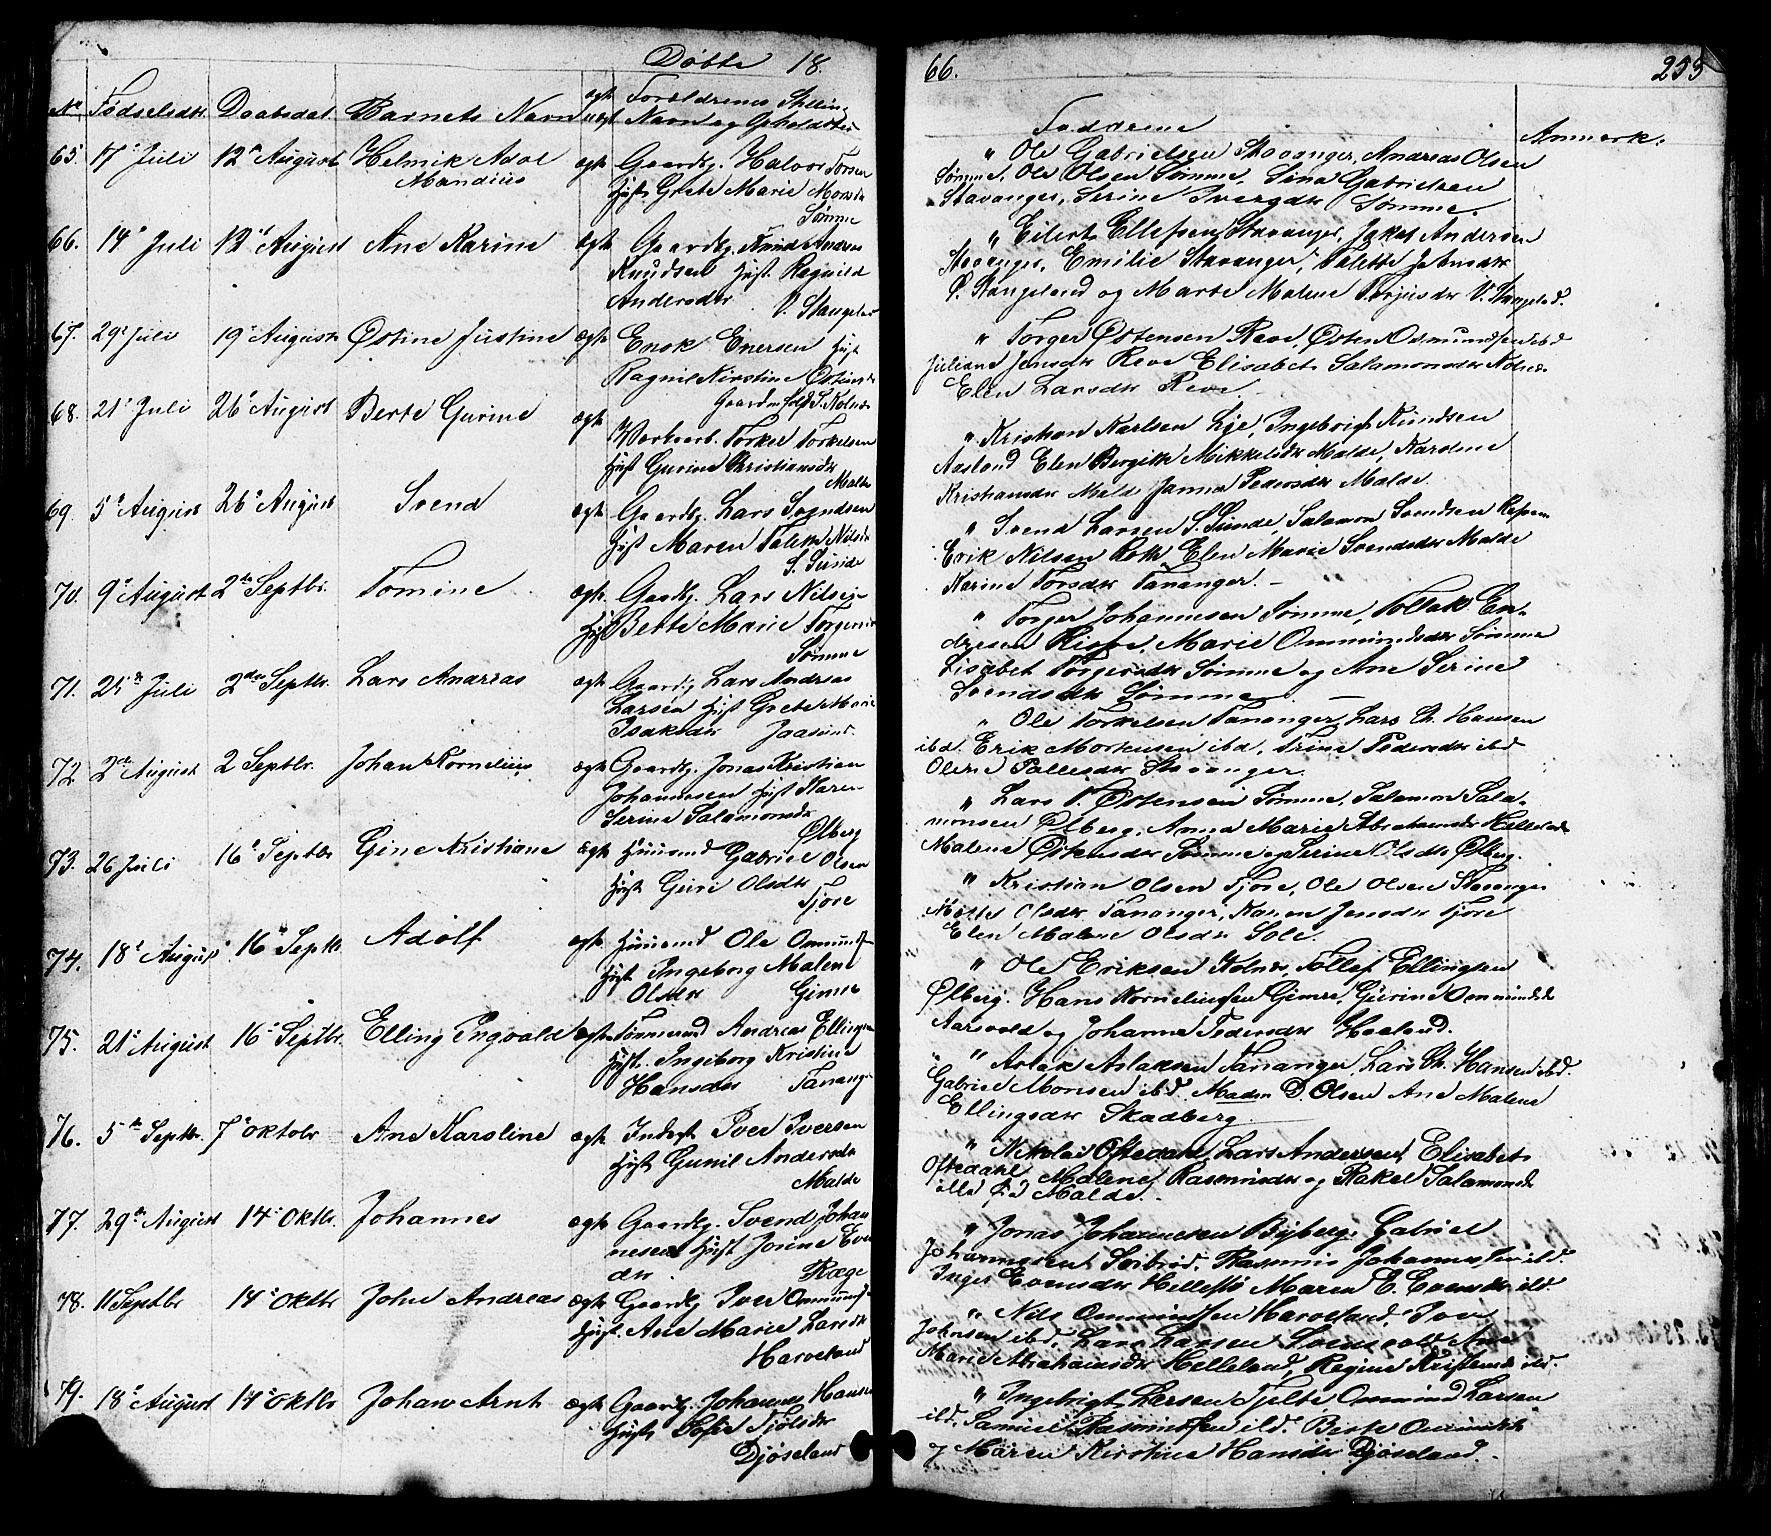 Døbte 18
66.
253
No Fødselsdt. Daabsdat. Barnets Navn ægte uægt Forældrenes Stilling, Navn og Opholdsted
Faddere
Anmærk.
65. 17de Juli 12te August Helmik Adol ægte Gaardbr. Halvor Torsen
Mandius Hust Grete Marie
Sømme
" Ole Gabrielsen Stavanger, Andreas Olsen
Sømme, Ole Olsen Sømme, Sina Gabrielsen
Stavanger, Serine Iversdtr Sømme.
66. 14de Juli 12te August Ane Karine ægte Gaardbr. Knud Andrea
Knudsen Hust. Ragnild
Andersdtr V. Stangeland
" Eilert Ellefsen Stavanger, Jakob Andersen
Stavanger, Emilie Stavanger, Talette
Ø. Stangeland og Marte Malene Torjusdtr V. Stangeld.
67. 29de Juli 19de August Østine Justine ægte Enok Enersen Hust
Ragnil Kirstine Østensdtr
Gaardm. Kolnæs
" Torger Østensen Reve, Østen Osmundsen ibd
Juliane Jensdtr Reve Elisabet Salamonsdtr Kolnæs
Elen Larsdtr Reve
68. 21de Juli 26de August Berte Gurine ægte
Torkel Torkelsen
Hust Gurine Kristiansdtr
Malde
" Kristian Karlsen Lye, Ingebrigt Knudsen
Aasland Elen Bergitte Mikkelsdtr Malde, Karoline
Kristiansdtr Mald Janna Pedersdtr Malde.
69. 5te August 26de August Svend ægte Gaardbr. Lars Svendsen
Hust Maren Talette Nilsdtr
S. Sunde
" Svend Larsen S. Sunde, Salamon Svendsen
Erik Nilsen Roth Elen Marie Svendsdtr Malde
Karine Torsdtr Tananger. -
70. 9de August 2den Septbr. Tomine ægte Gaardbr. Lars Nilsen
Hust Berte Marie Torgersdtr
Sømme
" Torger Johannesen Sømme, Tollak En-
dresen Risse, Marie Ommundsdtr Sømme
Lisabet Torgersdtr Sømme og Ane Serine
Svendsdtr Sømme -
71. 25de Juli 2den Septbr. Lars Andreas ægte Gaardbr Lars Andreas
Larsen Hust Grete Marie
Isaksdtr Jaasund.
" Ole Torkelsen Tananger, Lars Ch. Hansen
ibd. Erik Mortensen ibd, Trine Pedersdtr ibd
Olene Pallesdtr Stavanger.
72 2den August 2 Septbr. Johan Kornelius ægte Gaardbr. Jonas Kristian
Johannesen Hust Karen
Serine Salamonsdtr
Ølberg
" Lars T. Østensen Sømme, Salamon Sala-
monsen Ølberg, Anna Marie Abrahamsdtr Helleland
Malene Østensdtr Sømme og Serine Olsdtr Ølberg.
73. 26 Juli 16de Septbr Gine Kristiane ægte Huusmd Gabriel Olsen
Hust Guri Olsdtr
Tjore
" Kristian Olsen Tjore, Ole Olsen Stavanger
Olsdtr Tananger, Karen Jensdtr Tjore
Elen Malene Olsdtr Sole.
74. 18de August 16de Septbr. Adolf ægte Huusmd Ole Ommunds.
Hust Ingeborg Malene
Olsdtr Gimre
" Ole Eriksen Kolnæs, Tollef Ellingsen
Ølberg. Hans Korneliussen Gimre, Gurine Ommundsdtr
Aarsvold og Johanne Pedersdtr Haaland.
75. 21de August 16de Septbr. Elling Ingvald ægte Andreas Ellingsen
Hust. Ingeborg Kristine
Hansdtr Tanang.
" Aslak Aslaksen Tananger, Lars Ch. Hansen ibd.
Gabriel Monsen ibd. Maden D Olsen Ane Malene
Ellingsdtr Skadberg
76. 5te Septbr. 7de Oktobr Ane Karoline ægte Inderst Iver Iversen
Hust Gunil Andersdtr
Malde
" Nikolai Oftedahl, Lars Andersen, Elisabet
Oftedahl, Malene Rasmusdtr og Rakel Salamonsdtr
alle på Malde.
77. 29de August 14de Oktbr. Johannes ægte Gaardbr. Svend Johan
nesen Hust Jorine Even
dtr Ræge
" Jonas Johannesen Byberg, Gabriel
Johannesen Rasmus Johannes. ibd.
Inger Evensdtr Hellestø Maren E. Evensdtr ibd.
78. 11 Septbr 14de Oktbr John Andreas ægte Gaardbr Iver Ommunds.
Hust. Ane Marie Larsdtr
Harveland
" Nils Ommundsen Harveland, Iver
Johnsen ibd. Lars Larsen Ane
Marie Abrahamsdtr Helleland, Regine ibd.
79. 18de August 14de Oktbr Johan Arnt ægte Gaardbr. Johannes Hansen
Hust Sofie
Djøseland
" Ingebrigt Larsen Tjelte Ommund Larsen
ibd. Samuel Rasmussen ibd. Berte Ommundsdtr
og Maren Kirstine Hansdtr Djøseland.